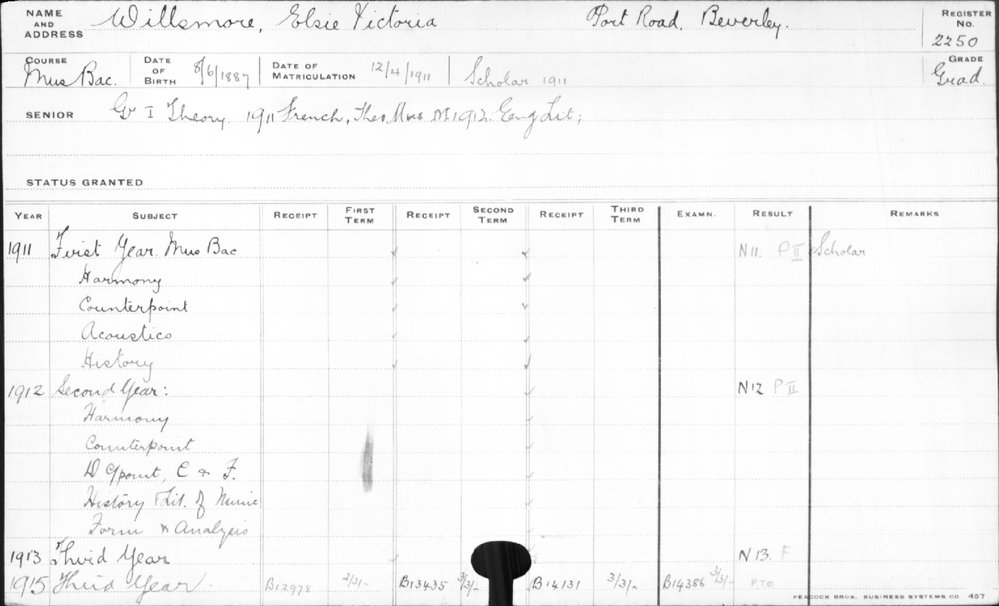 NAME AND ADDRESS Willsmore, Elsie Victoria Port Road, Beverley. REGISTER No. 2250
COURSE Mus Bac. DATE OF BIRTH 8/6/1887 DATE OF MATRICULATION 12/4/1911 Scholar 1911 GRADE Grad.
SENIOR Gr I Theory. 1911 French, Theo Mus 1912. Eng Lit;
STATUS GRANTED
YEAR SUBJECT RECEIPT FIRST TERM RECEIPT SECOND TERM RECEIPT THIRD TERM EXAMN. RESULT REMARKS
1911 First Year Mus Bac ✓ ✓ N11. P II Scholar
Harmony ✓ ✓
Counterpoint ✓ ✓
Acoustics ✓ ✓
History ✓ ✓
1912 Second Year: ✓ N12 P II
Harmony ✓
Counterpoint ✓
D Cpoint, C & F. ✓
History & Lit. of Music ✓
Form & Analysis ✓
1913 Third Year ✓ ✓ N13. F
1915 Third Year. B12978 3/3/- B13435 3/3/- B14131 3/3/- B14386 3/3/- P.T.O.
PEACOCK BROS. BUSINESS SYSTEMS. CO. 457